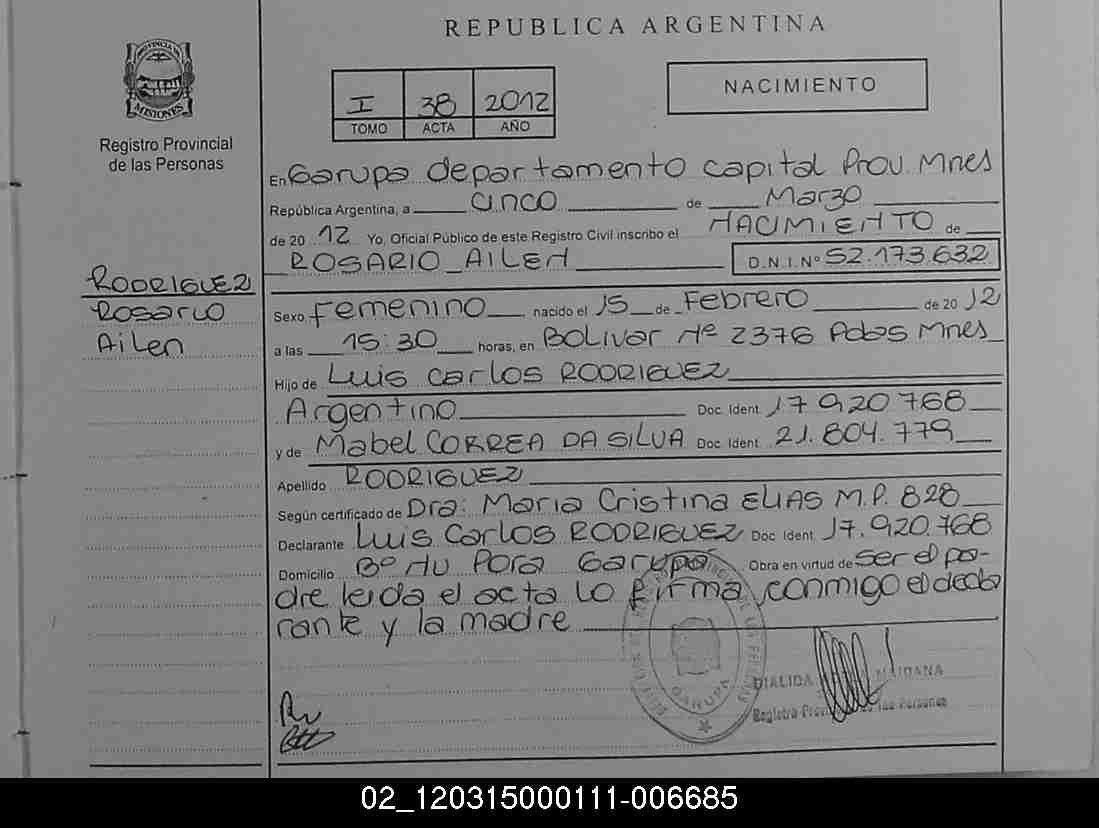 REPUBLICA ARGENTINA
PROVINCIA DE
MISIONES
Registro Provincial
de las Personas
I 38 2012
TOMO ACTA AÑO
NACIMIENTO
En Garupa departamento capital Prov. Mnes
República Argentina, a cinco de Marzo
de 20 12 Yo, Oficial Público de este Registro Civil inscribo el NACIMIENTO de
ROSARIO AILEN D.N.I. Nº 52.173.632
RODRIGUEZ
Rosario
Ailen
Sexo femenino nacido el 15 de Febrero de 20 12
a las 15:30 horas, en Bolivar Nº 2376 Pdas Mnes
Hijo de Luis Carlos RODRIGUEZ
Argentino Doc. Ident. 17 920 768
y de Mabel CORREA DA SILVA Doc. Ident. 21.804.779
Apellido RODRIGUEZ
Según certificado de Dra: Maria Cristina ELIAS M.P. 828
Declarante Luis Carlos RODRIGUEZ Doc. Ident. 17.920.768
Domicilio Bº Ñu Pora Garupá Obra en virtud de ser el pa-
dre leida el acta lo firma conmigo el decla
rante y la madre
GARUPA
DIALIDA MAIDANA
Registro Provincial de las Personas
02_120315000111-006685